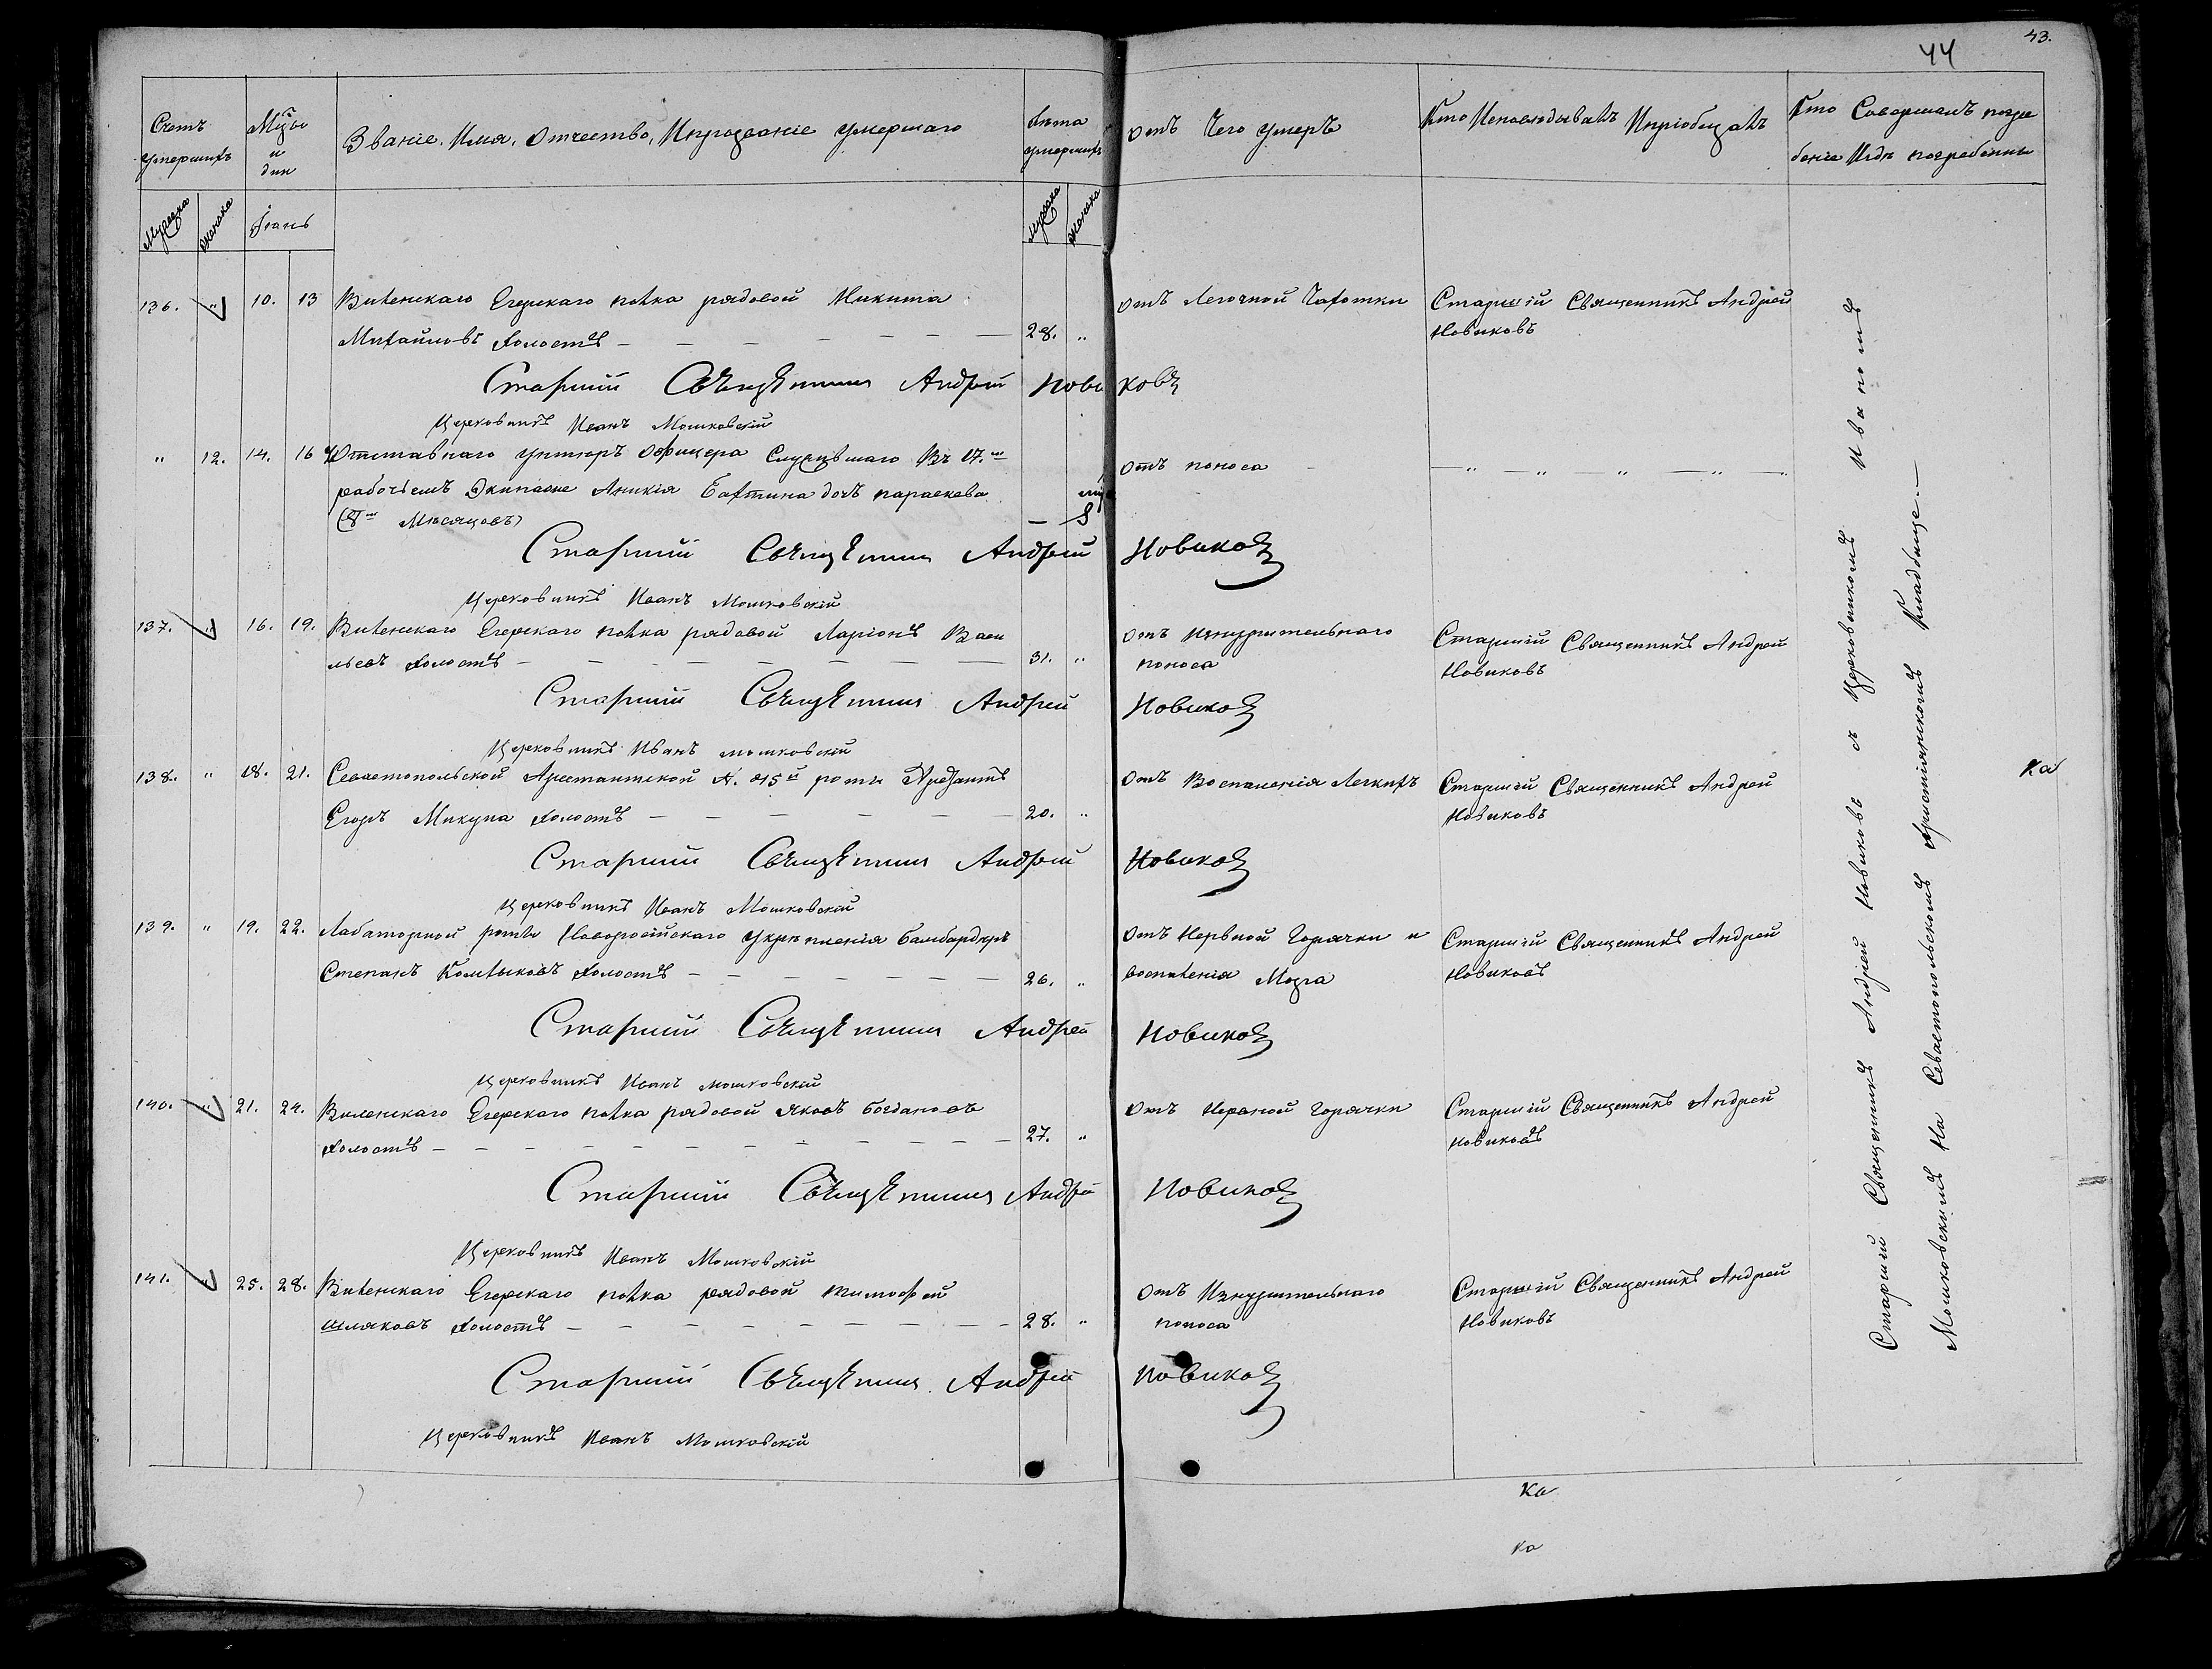 44
43.
Счетъ умершихъ
Мѣсяцъ и дни
Званіе, Имя, Отчество, Ипрозваніе умершаго
Лѣта умершихъ
Отъ Чего умеръ
Кто Исповѣдывалъ Ипріобщалъ
Кто Совершалъ погре
беніе Игдѣ погребенны
Мужска
женска
Мужска
женска
136. " 10. 13 Виленскаго Егерскаго полка рядовой Никита
Михайловъ холостъ 28. "
Отъ Легочной Чахотки
Старшій Священникъ Андрей
Новиковъ
Старшій Священникъ Андрей Новиковъ
Церковникъ Иванъ Мошковскій
" 12. 14. 16 Отставнаго унтеръ офицера Служившаго Въ 17.м
рабочьемъ Экипаже Аникія Бахтина дочь параскева
(8ми Мѣсяцовъ) — 8
Отъ поноса
— " — " — " — " — "
Старшій Священникъ Андрей Новиковъ
Церковникъ Иванъ Мошковскій
137. " 16. 19. Виленскаго Егерскаго полка рядовой Ларіонъ Васи
льевъ холостъ 31. "
Отъ Изнурительнаго
поноса
Старшій Священникъ Андрей
Новиковъ
Старшій Священникъ Андрей Новиковъ
Церковникъ Иванъ мошковскій
138. " 18. 21. Севастопольской Арестантской №. 15й роты Арестантъ
Егоръ Микула холостъ 20. "
Отъ Воспаленія Легкихъ
Старшій Священникъ Андрей
Новиковъ
Старшій Священникъ Андрей Новиковъ
Церковникъ Иванъ Мошковскій
139. " 19. 22. Лабаторной роты Новоросійскаго укрѣпленія бамбардиръ
Степанъ Колтыковъ холостъ 26. "
Отъ Нервной Горячки и
воспаленія Мозга
Старшій Священникъ Андрей
Новиковъ
Старшій Священникъ Андрей Новиковъ
Церковникъ Иванъ мошковскій
140. " 21. 24. Виленскаго Егерскаго полка рядовой Яковъ богдановъ
холостъ 27. "
Отъ Нервной горячки
Старшій Священникъ Андрей
Новиковъ
Старшій Священникъ Андрей Новиковъ
Церковникъ Иванъ Мошковскій
141. " 25. 28. Виленскаго Егерскаго полка рядовой тимофей
шляковъ холостъ 28. "
Отъ Изнурительнаго
поноса
Старшій Священникъ Андрей
Новиковъ
Старшій Священникъ Андрей Новиковъ
Церковникъ Иванъ Мошковскій
Старшій Священникъ Андрей Новиковъ съ Церковникомъ Иваномъ
Мошковскимъ На Севастопольскомъ христіянскомъ Кладбище.—
Ка
Ка
Ка